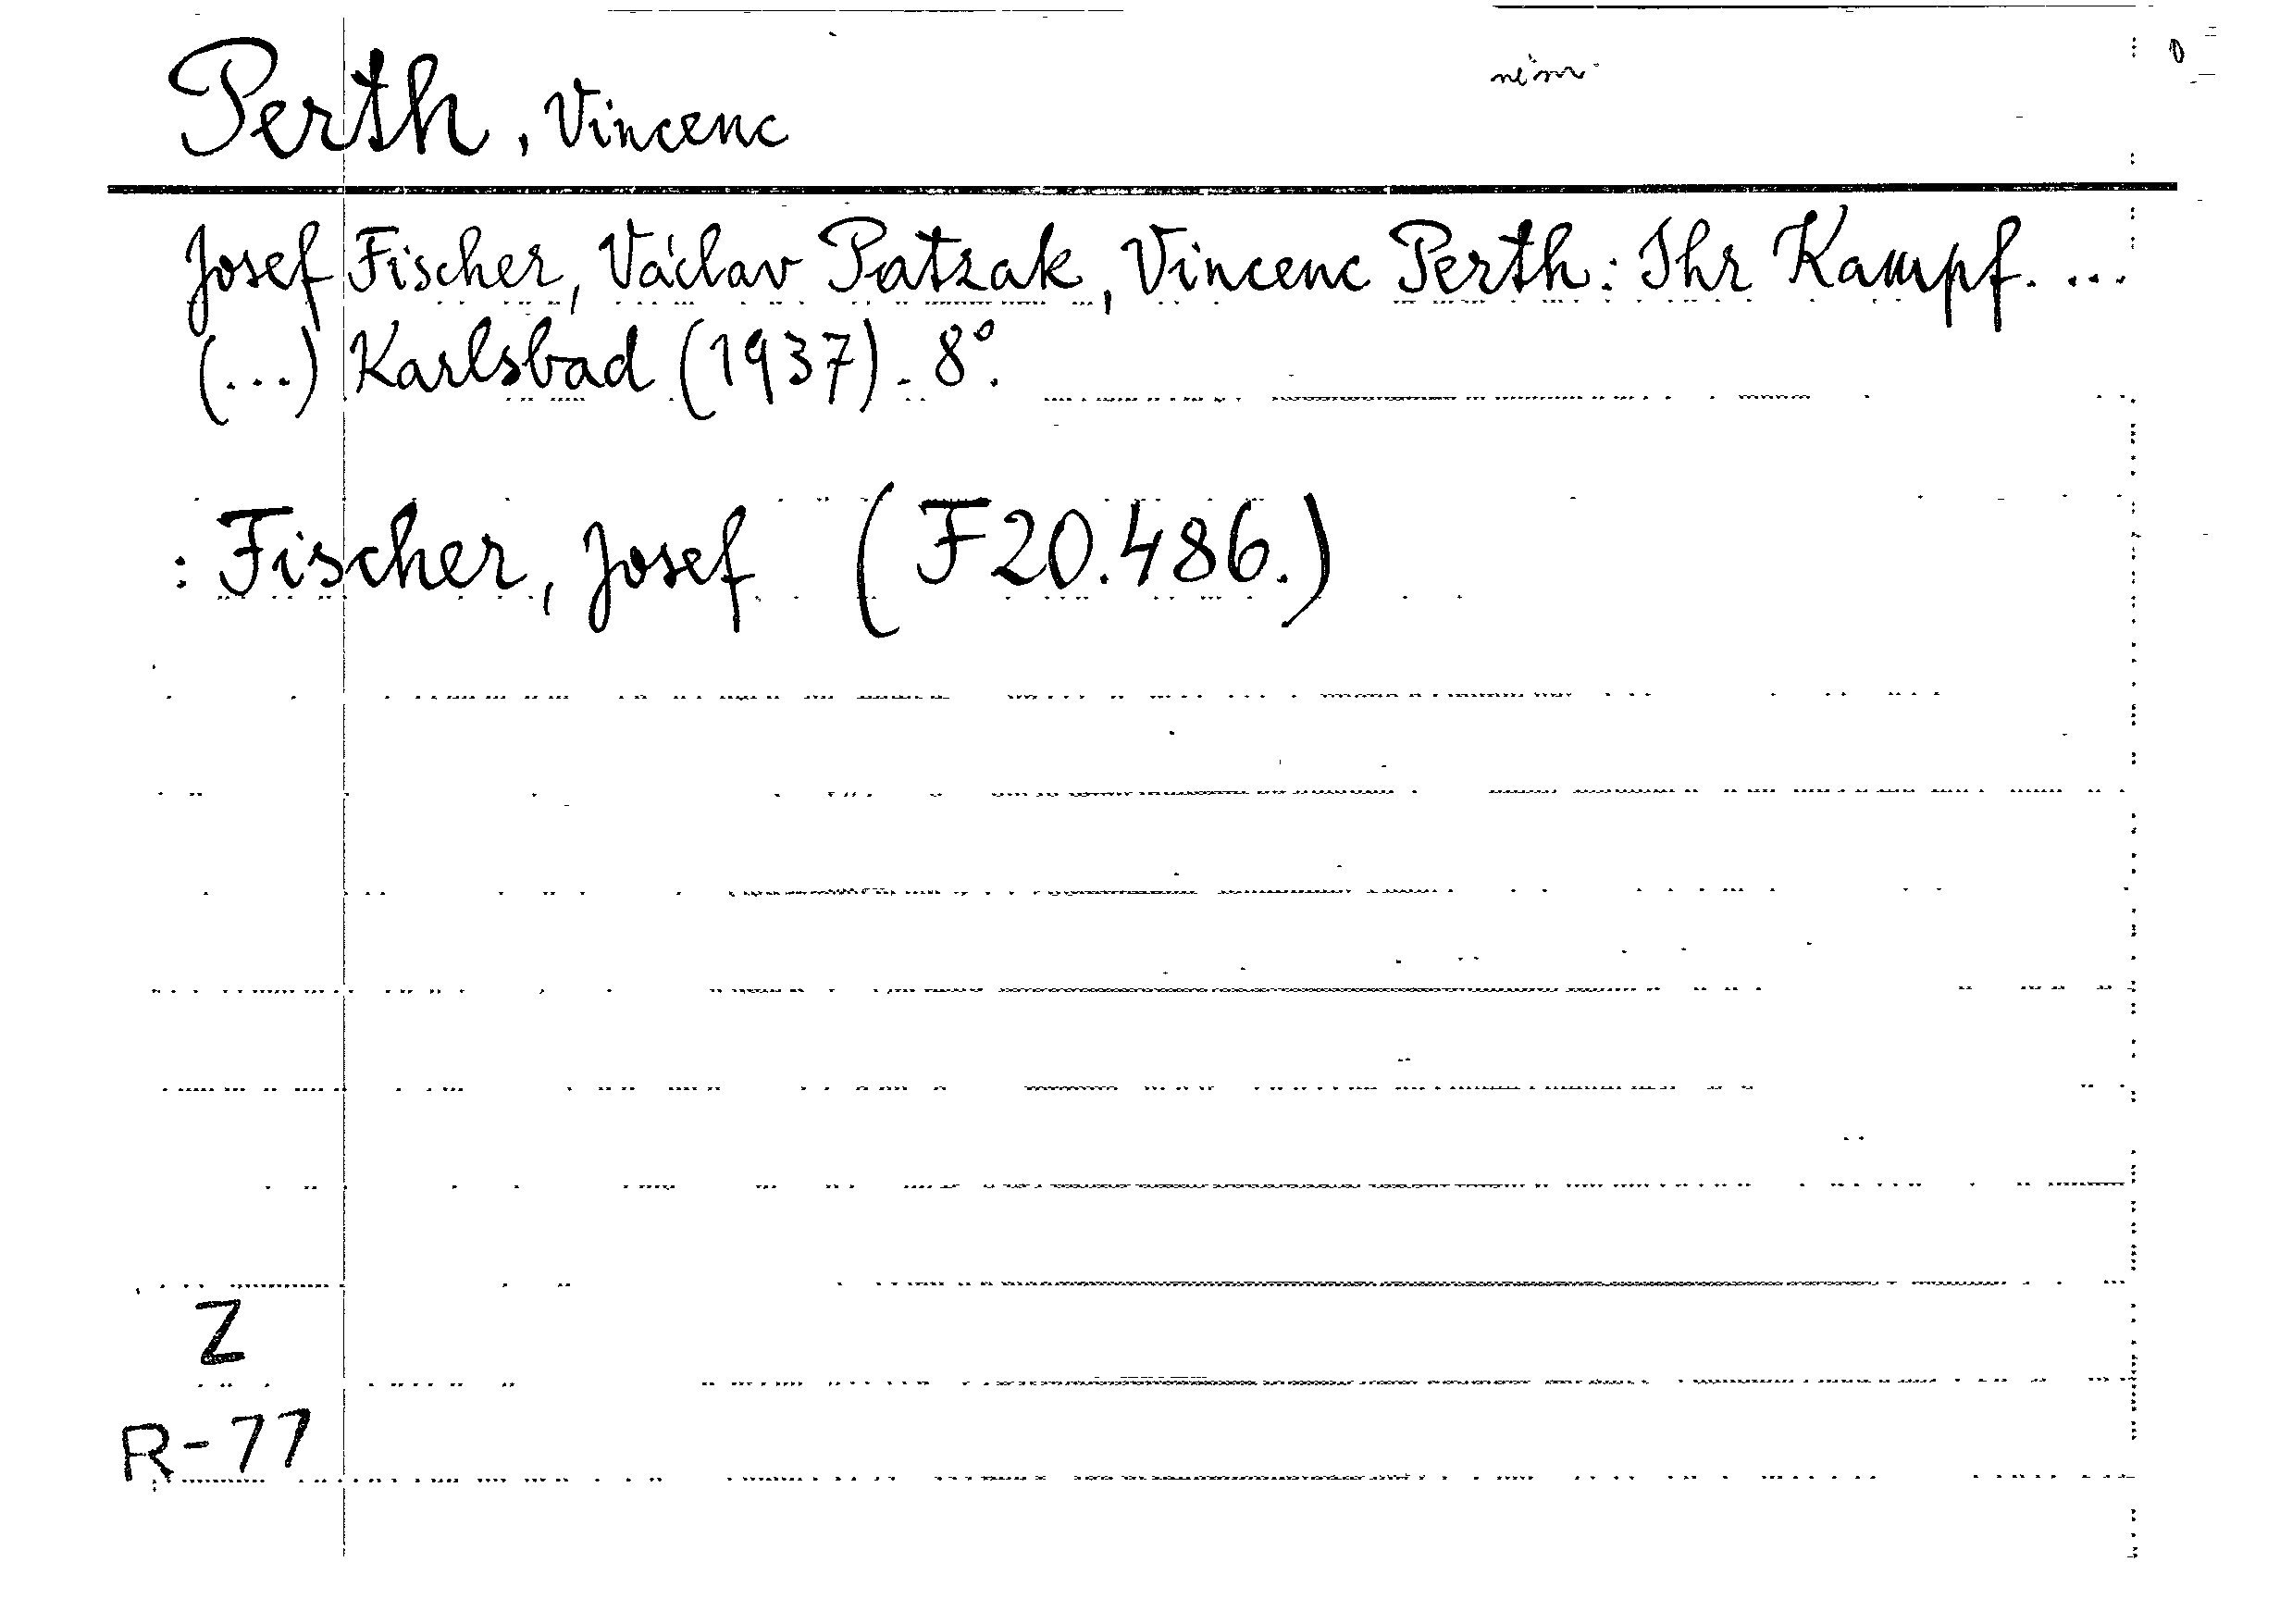 něm.
Perth, Vincenc
Josef Fischer, Václav Patzak, Vincenc Perth: Ihr Kampf. ...
(...) Karlsbad (1937). 8°.
: Fischer, Josef (F20.486.)
Z
R-77